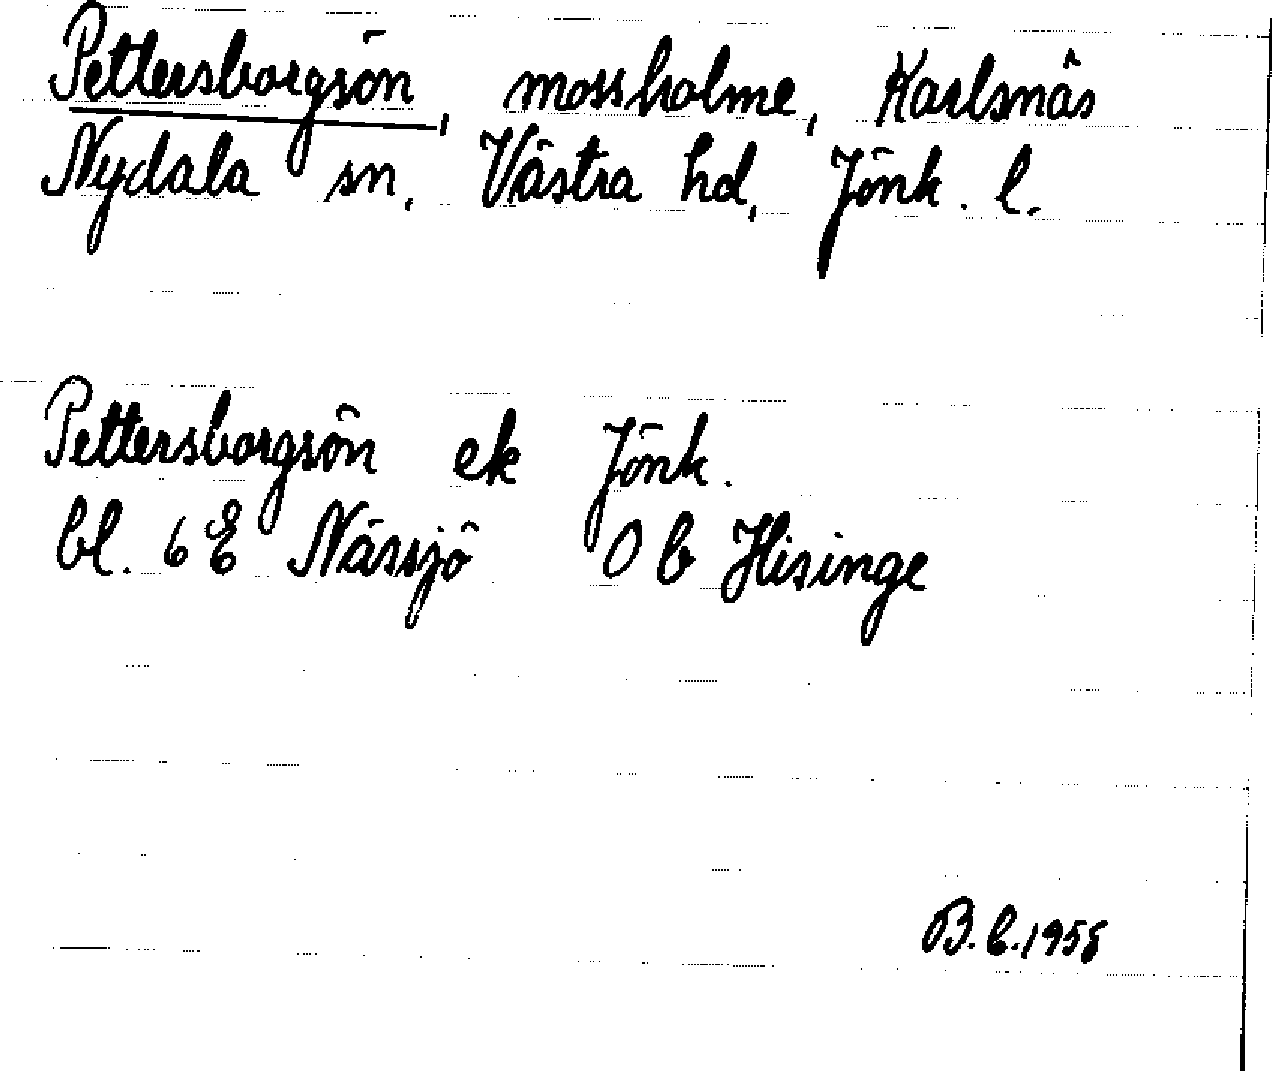 Pettersborgsön, mossholme, Karlsnäs
Nydala sn, Västra hd, Jönk. l.
Pettersborgsön ek Jönk.
bl. 6 E Nässjö 0 b Hisinge
B.E. 1958